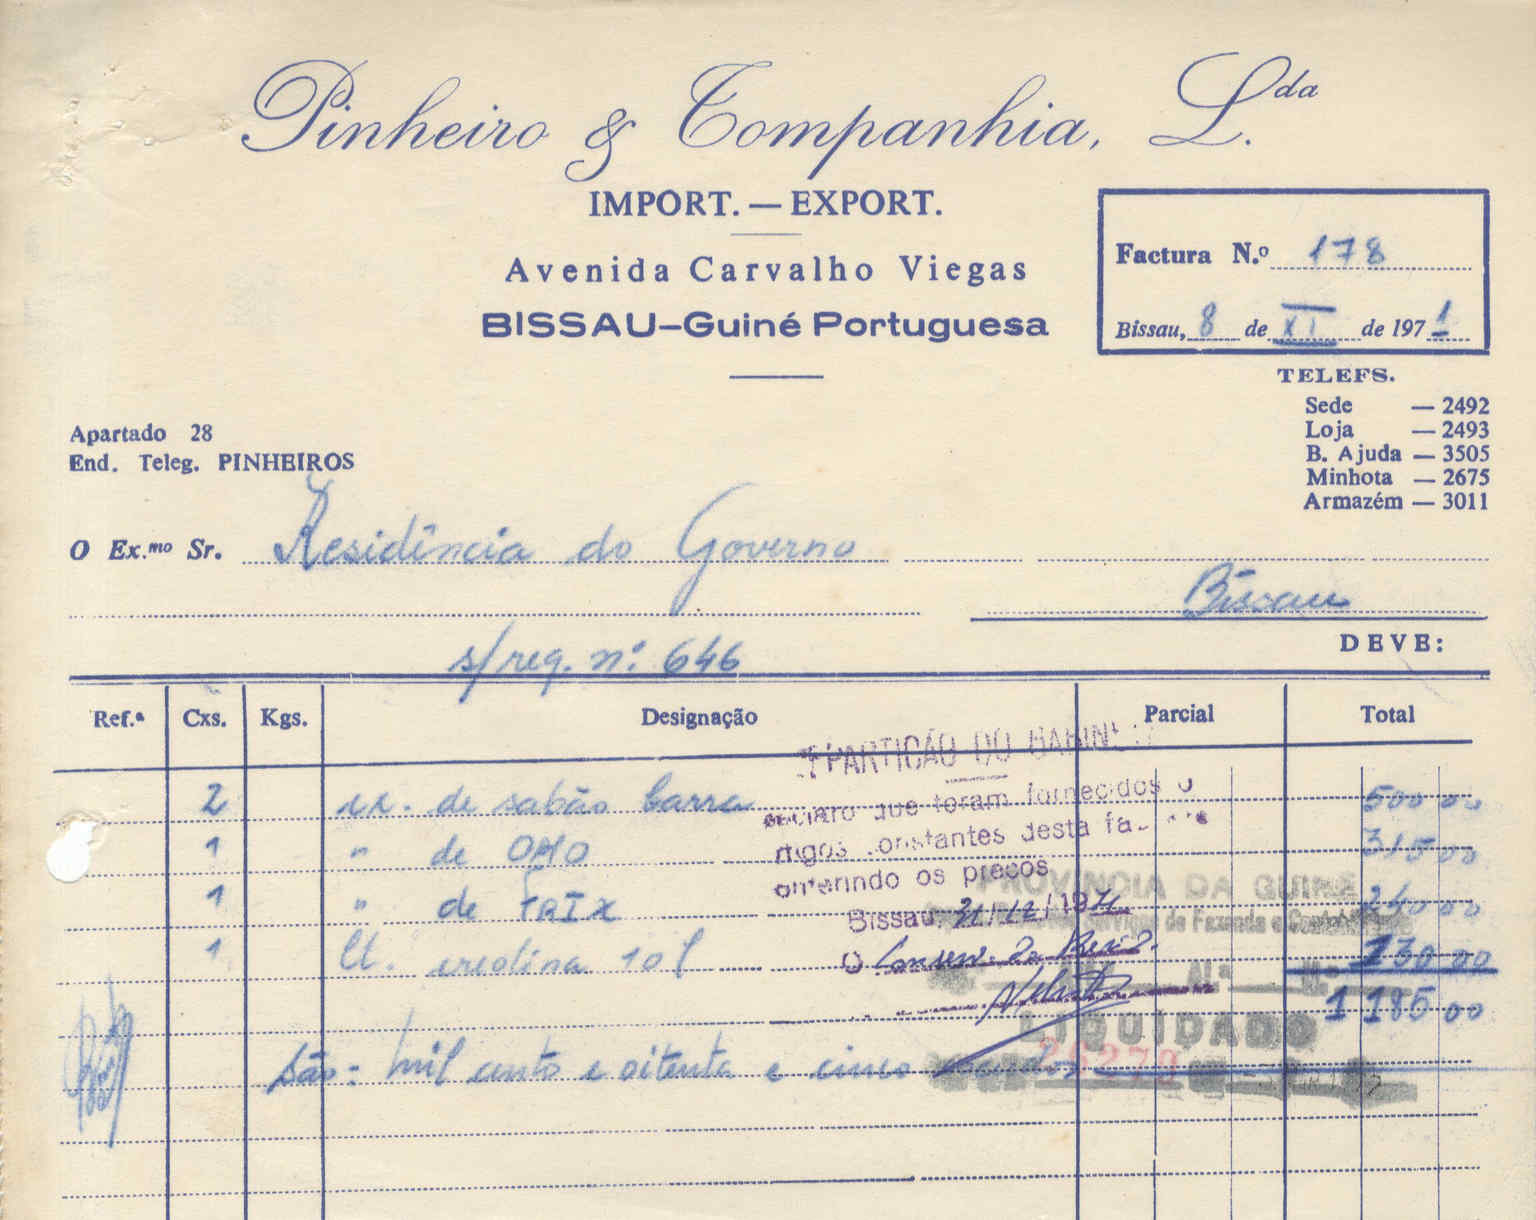 Pinheiro & Companhia, L.da
IMPORT. — EXPORT.
Avenida Carvalho Viegas
BISSAU—Guiné Portuguesa
Factura N.º 178
Bissau, 8 de XI de 1971
TELEFS.
Sede — 2492
Loja — 2493
B. Ajuda — 3505
Minhota — 2675
Armazém — 3011
Apartado 28
End. Teleg. PINHEIROS
O Ex.mo Sr. Residência do Governo
Bissau
DEVE:
s/req. nº 646
Ref.ª Cxs. Kgs. Designação Parcial Total
2 cx. de sabão barra 500 00
1 " de OMO 315 00
1 " de TRIX 240 00
1 lt. creolina 10 l 130 00
1 185 00
São: mil cento e oitenta e cinco escudos
EPARTIÇÃO DO GABIN
eclaro que foram fornecidos o
rtigos constantes desta fa
onferindo os preços
Bissau, 31/12/1971
O
PROVÍNCIA DA GUINÉ
Serviços de Fazenda e Contabilidade
LIQUIDADO
26279